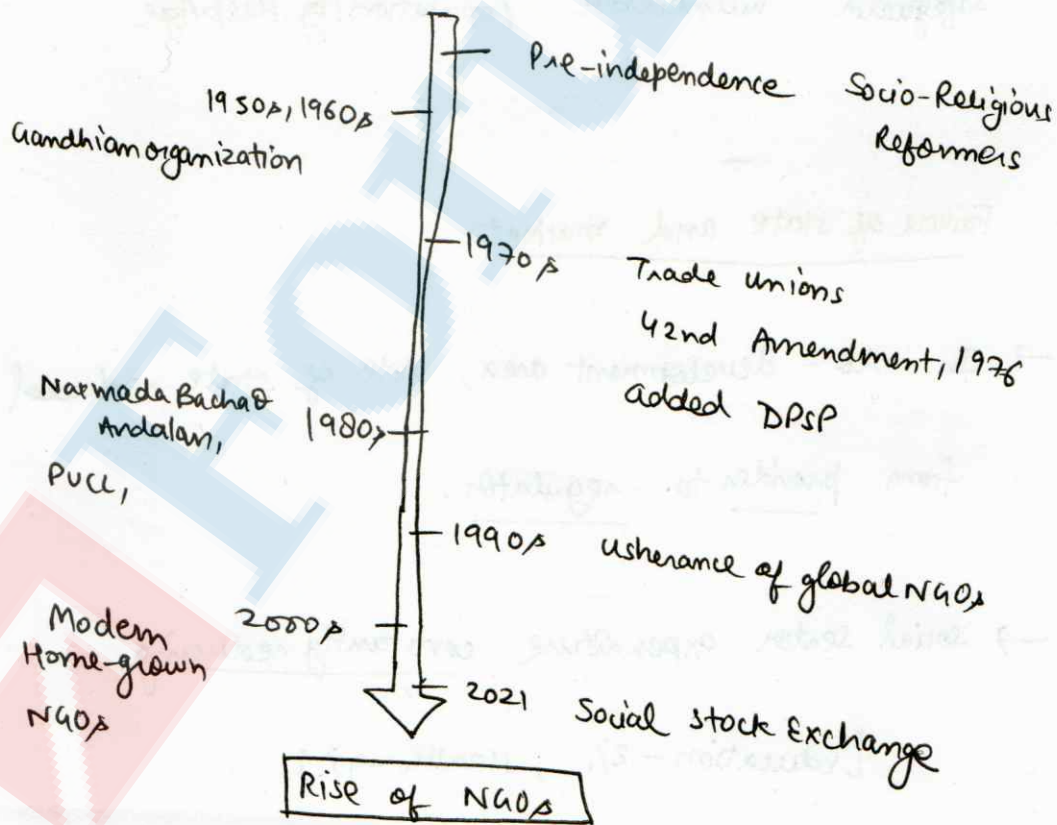 Pre-independence Socio-Religious
Reformers
1950s, 1960s
Gandhian organization
1970s Trade Unions
42nd Amendment, 1976
added DPSP
Narmada Bachao
Andalan, 1980s
PUCL,
1990s usherance of global NGOs
Modern 2000s
Home-grown
NGOs
2021 Social Stock Exchange
Rise of NGOs